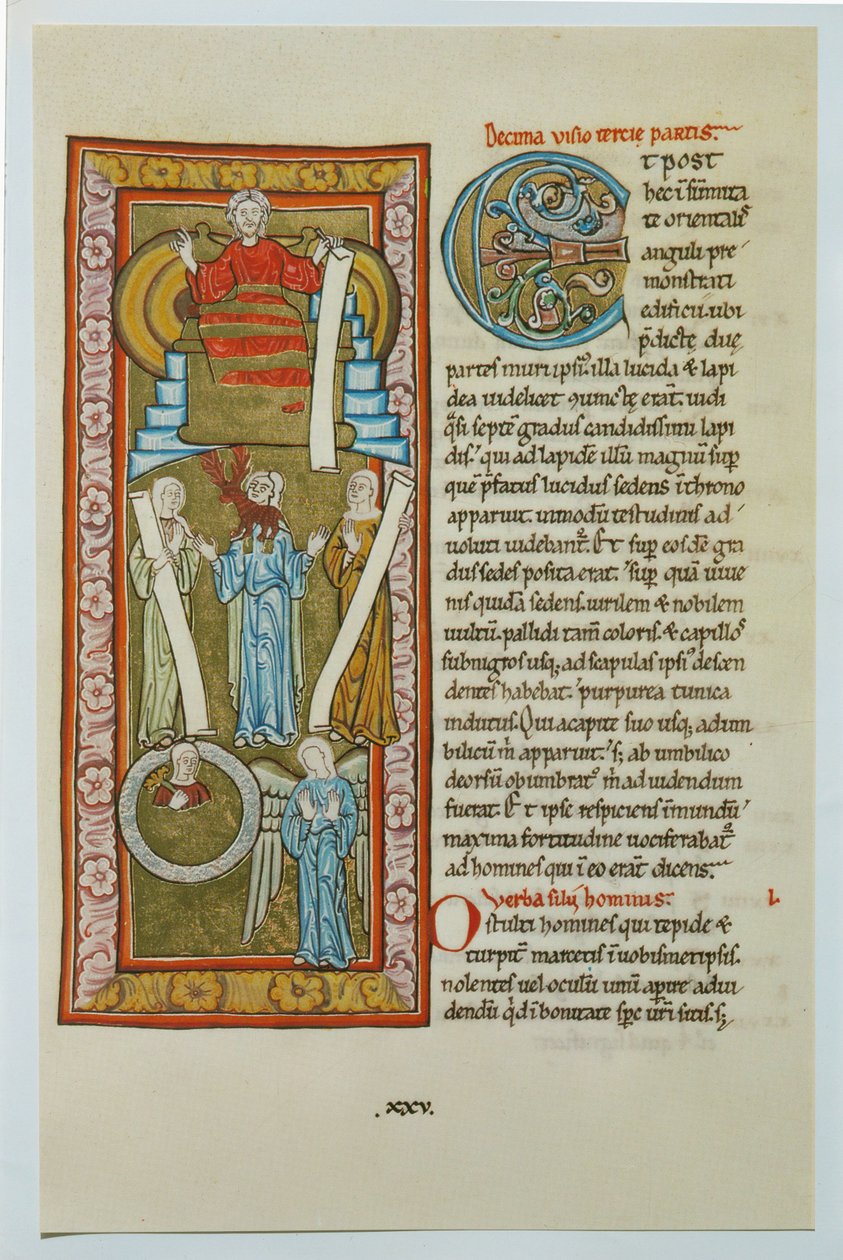 Decima visio tercię partis.
Et post
hec ī sūmita
te orientalis
anguli pre
monstrati
edificii. ubi
p̄dictę duę
partes muri ipsi᷒. illa lucida & lapi
dea uidelicet ꝯiunctę erāt. uidi
q̄si septē gradus candidissimi lapi
dis. qui ad lapidē illū magnū sup̱
quē p̄fatus lucidus sedens ī throno
apparuit. in modū testudinis ad
uoluti uidebant᷑. Et sup̱ eosdē gra
dus sedes posita erat. sup̱ quā iuue
nis quidā sedens. uirilem & nobilem
uultū. pallidi tam̄ coloris. & capillos
subnigros usq; ad scapulas ipsi᷒ descen
dentes habebat. purpurea tunica
indutus. Qui a capite suo usq; ad um
bilicū m̍ apparuit. s; ab umbilico
deorsū obumbrat᷒ m̍ ad uidendum
fuerat. Et ipse respiciens ī mundū
maxima fortitudine uociferabat᷑
ad homines qui ī eo erāt dicens.
Verba filii hominis. I.
O stulti homines qui tepide &
turpit̄ marcetis ī uobismetipsis.
nolentes uel oculū unū aperire ad ui
dendū qd̍ ī bonitate sp̄c ur̄i sitis. s;
.xxv.